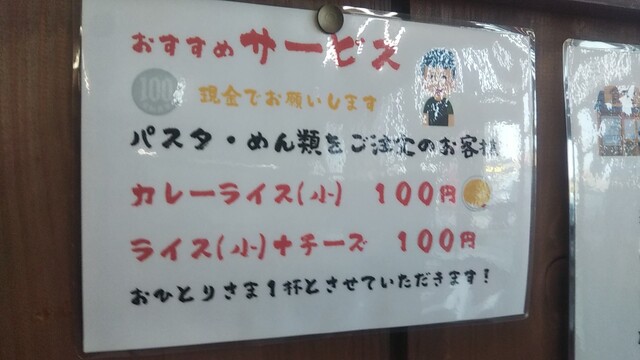 おすすめサービス
100 現金でお願いします
パスタ・めん類をご注文のお客様
カレーライス(小) 100円
ライス(小)+チーズ 100円
おひとりさま1杯とさせていただきます!